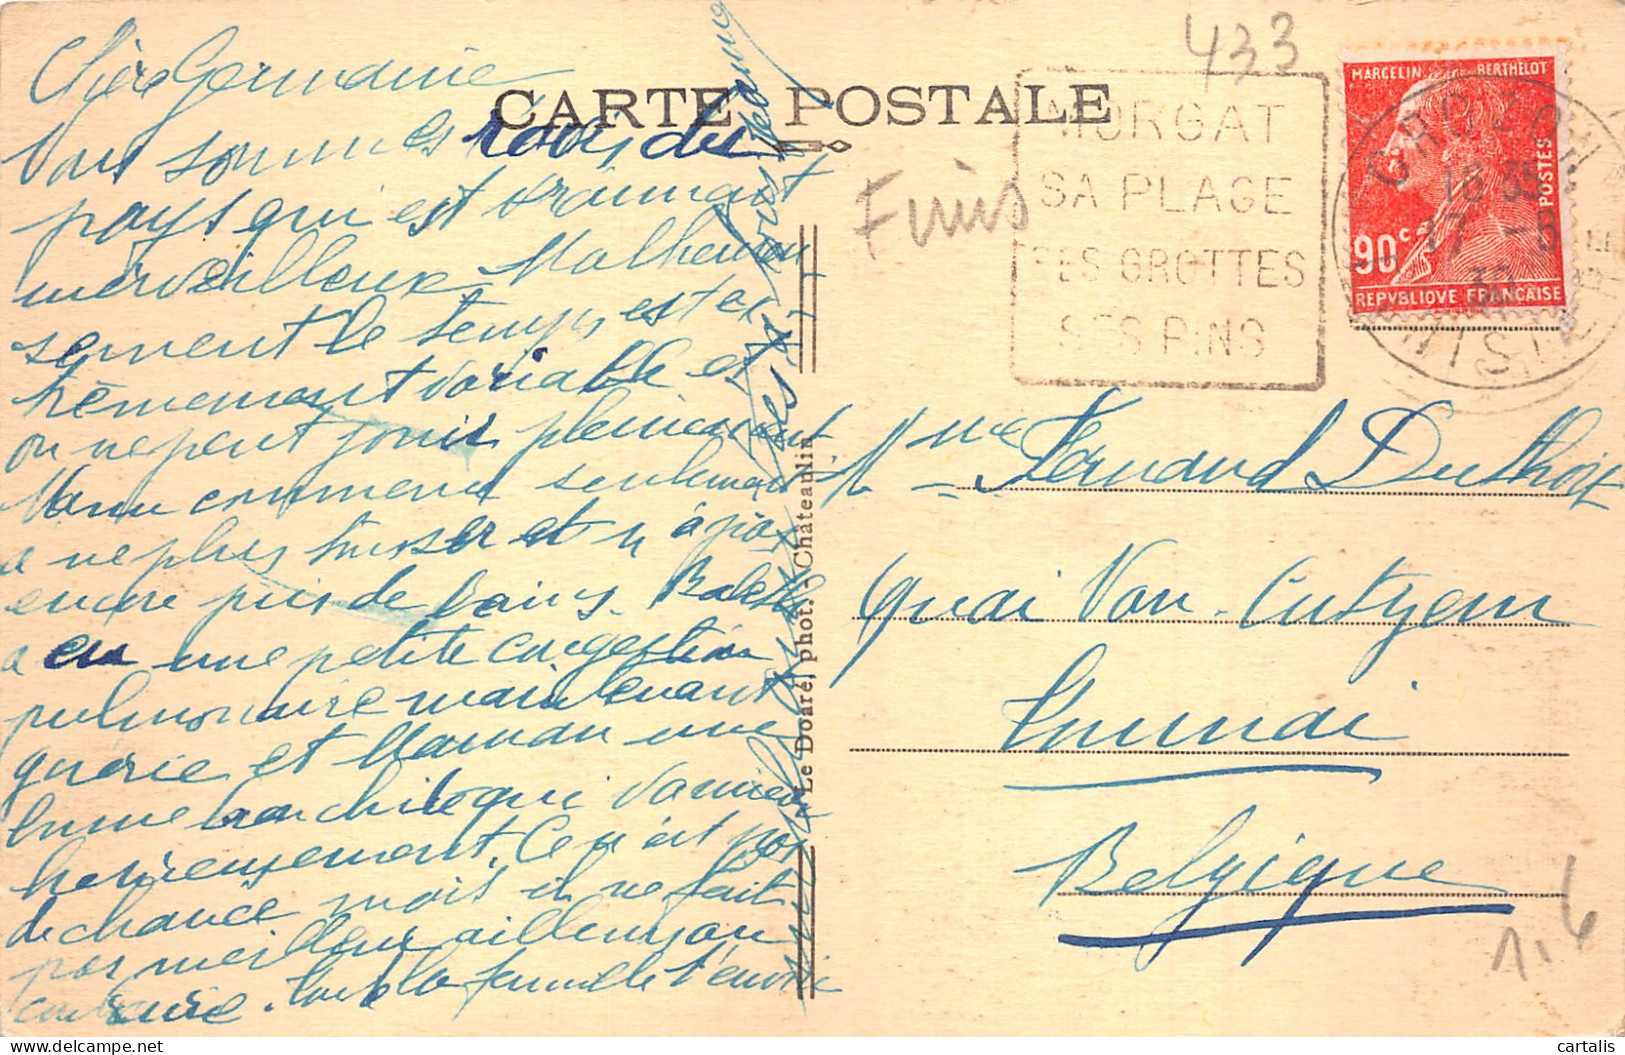 Chère Germaine
Nous sommes ravis du
pays qui est vraiment
merveilleux Malheureu
sement le temps est ex
trêmement variable et
on ne peut jouir pleinement
Manu commence seulement
a ne plus tousser et n'a pas
encore pris de bains.
a eu une petite congestion
pulmonaire maintenant
guérie et Maman une
bronchite qui va mieux
heureusement. Ce n'est pas
de chance mais il ne fait
pas meilleur ailleurs on
Toute la famille t'envoie
CARTE POSTALE
433
Finis
MORGAT
SA PLAGE
SES GROTTES
SES PINS
MARCELIN BERTHELOT
POSTES
90c
REPVBLIQVE FRANÇAISE
CROZON
16 35
17 -8
30
FINISTERE
Le Doaré, phot. - Châteaulin
Mme Fernand Duthoit
Quai Van-Cutsem
Tournai
Belgique
1,6
cartalis